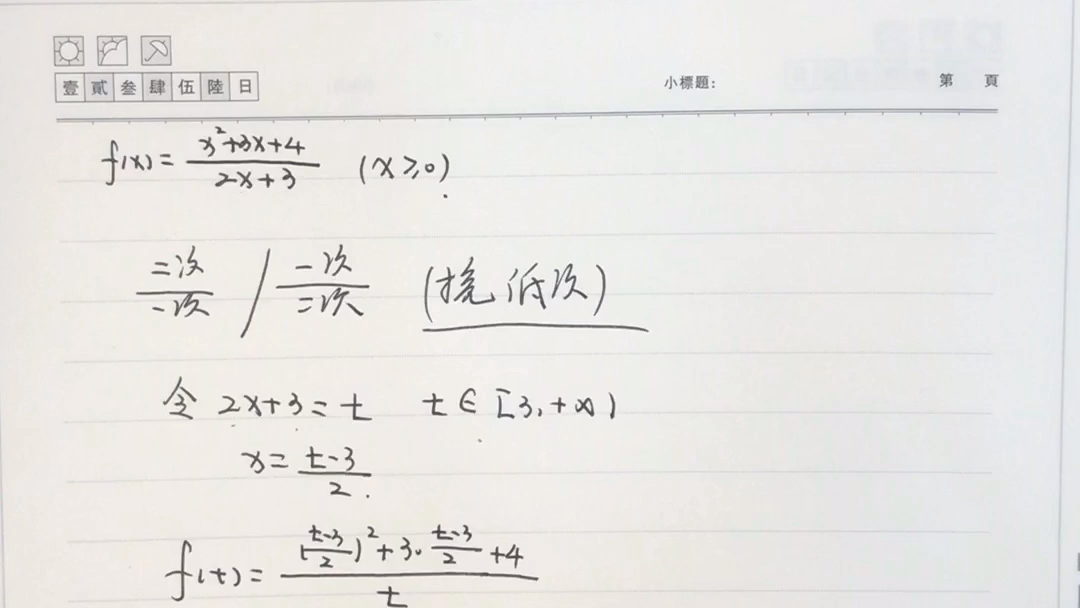 壹 貳 叁 肆 伍 陸 日 小標題： 第 頁
f(x) = \frac{x^2+3x+4}{2x+3} (x≥0)
\frac{二次}{一次} / \frac{一次}{二次} (换低次)
令 2x+3=t t∈[3,+∞)
x = \frac{t-3}{2}.
f(t) = \frac{(\frac{t-3}{2})^2+3·\frac{t-3}{2}+4}{t}